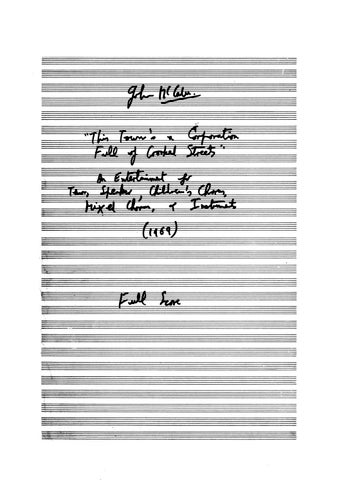 John McCabe
"This Town's a Corporation
Full of Crooked Streets"
An Entertainment for
Tenor, Speaker, Children's Chorus,
Mixed Chorus, & Instruments
(1969)
Full Score